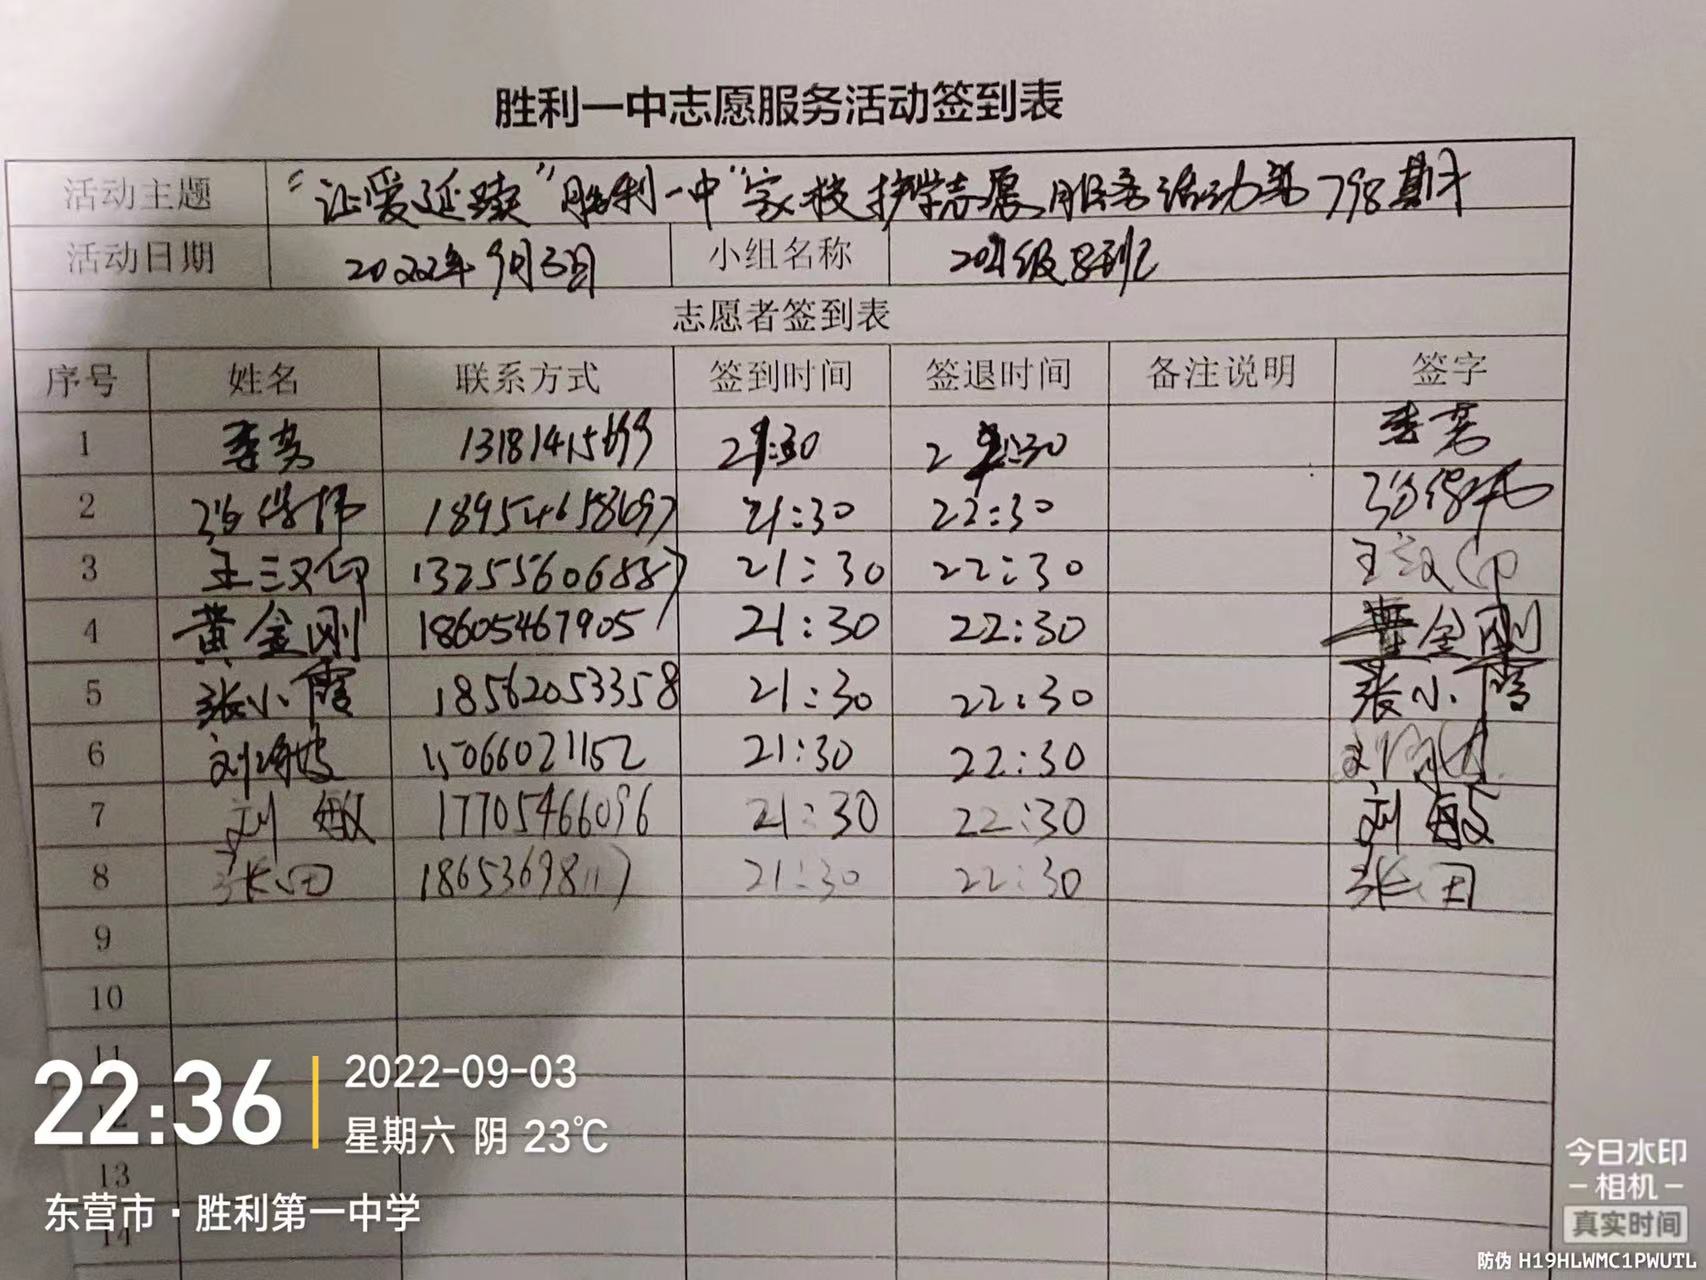 胜利一中志愿服务活动签到表
活动主题 “让爱延续”胜利一中“家校护学志愿服务活动第798期
活动日期 2022年9月3日 小组名称 2021级8班
志愿者签到表
序号 姓名 联系方式 签到时间 签退时间 备注说明 签字
1 李芳 13181415699 21:30 22:30 李芳
2 18954658697 21:30 22:30
3 王汉卬 13255606887 21:30 22:30 王汉卬
4 黄金刚 18605467905 21:30 22:30 黄金刚
5 张小霞 18562053358 21:30 22:30 张小霞
6 15066021152 21:30 22:30
7 刘敏 17705466096 21:30 22:30 刘敏
8 张田 18653698117 21:30 22:30 张田
9
10
11
12
13
14
22:36
2022-09-03
星期六 阴 23℃
东营市·胜利第一中学
今日水印
相机
真实时间
防伪 H19HLWMC1PWUTL